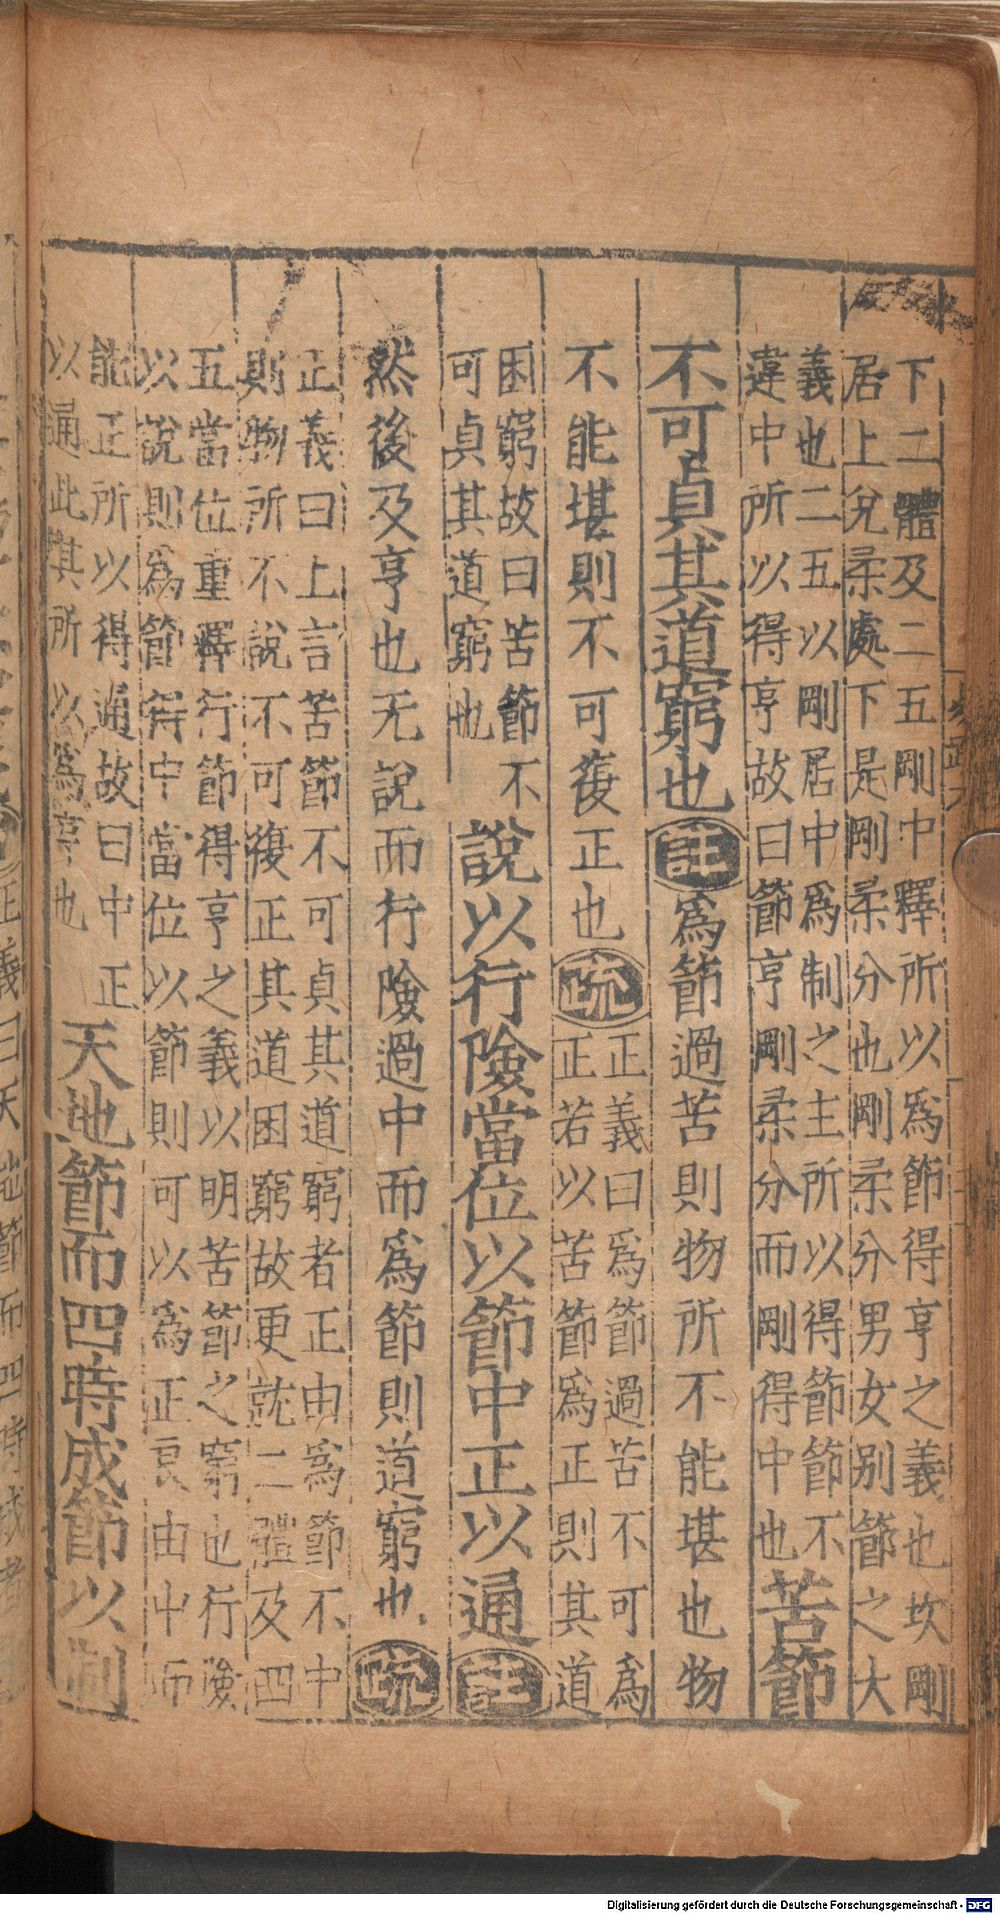 下二體及二五剛中釋所以爲節得亨之義也坎剛
居上兌柔處下是剛柔分也剛柔分男女别節之大
義也二五以剛居中爲制之主所以得節節不
違中所以得亨故曰節亨剛柔分而剛得中也
苦節
不可貞其道窮也註爲節過苦則物所不能堪也物
不能堪則不可復正也疏
正義曰爲節過苦不可爲
正若以苦節爲正則其道
困窮故曰苦節不
可貞其道窮也
說以行險當位以節中正以通註
然後及亨也无說而行險過中而爲節則道窮也疏
正義曰上言苦節不可貞其道窮者正由爲節不中
則物所不說不可復正其道困窮故更就二體及四
五當位重釋行節得亨之義以明苦節之窮也行險
以說則爲節得中當位以節則可以爲正良由中而
能正所以得通故曰中正
以通此其所以爲亨也
天地節而四時成節以制
Digitalisierung gefördert durch die Deutsche Forschungsgemeinschaft - DFG